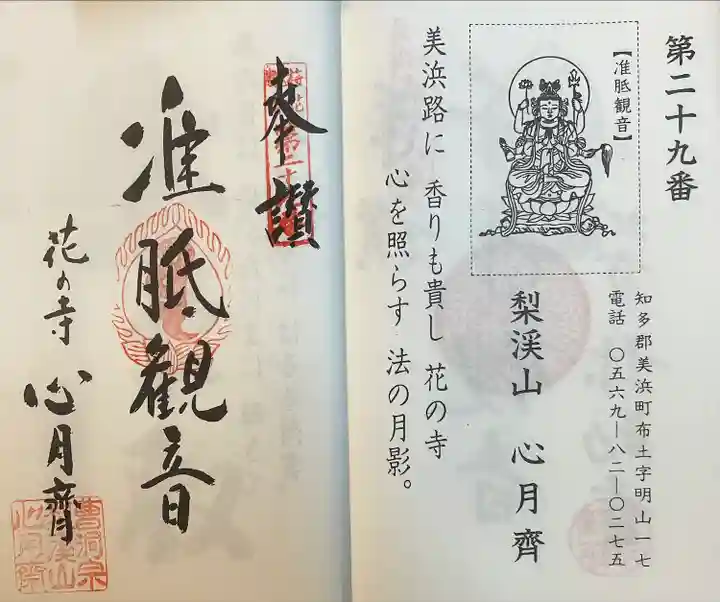 第二十九番
【准胝観音】
知多郡美浜町布土字明山一七
電話 〇五六九―八二―〇二七五
梨渓山 心月齊
美浜路に 香りも貴し 花の寺
心を照らす 法の月影。
奉讃
准胝観音
花の寺 心月齊
曹洞宗
梨渓山
心月齊